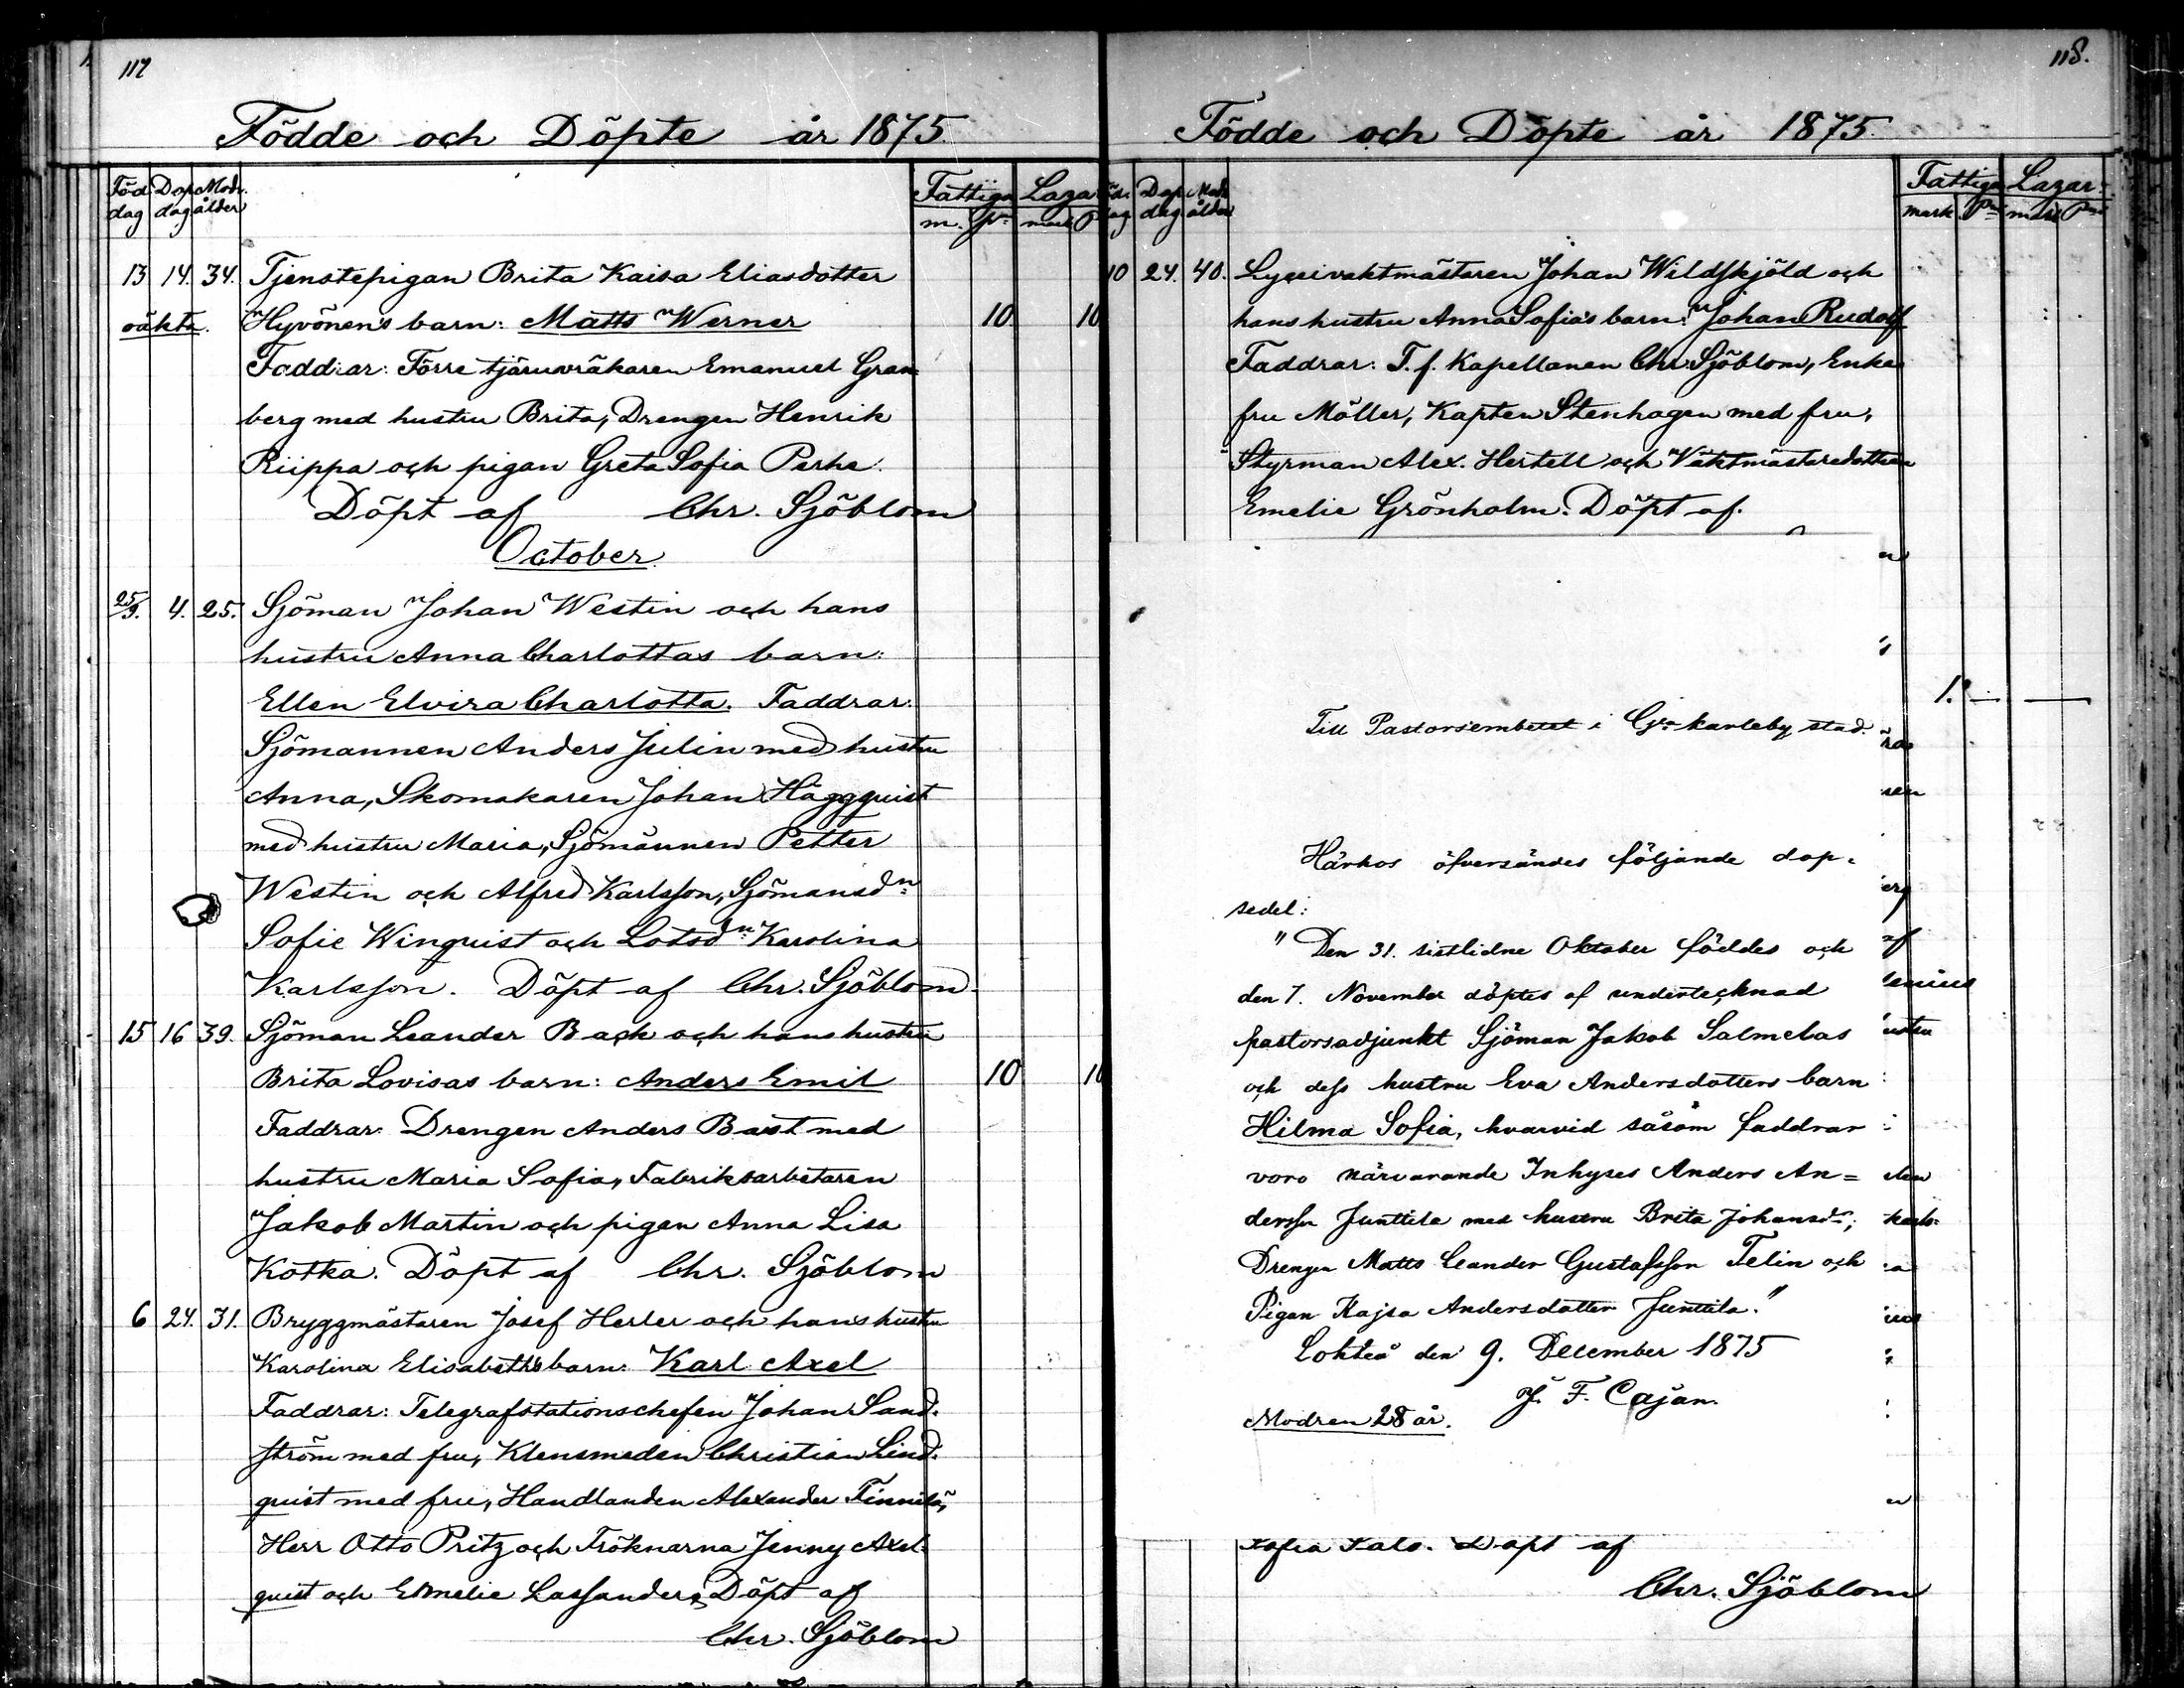 117
Födde och Döpte år 1875.
Föd. dag Dop dag Modr. ålder Fattiga m. pi Lazar mark P
13 14. 34. Tjenstepigan Brita Kaisa Eliasdotter
oäkta. Hyvönens barn: Matts Werner 10 10
Faddrar: Förre tjäruvräkaren Emanuel Gran=
berg med hustru Brita, Drengen Henrik
Riippa och pigan Greta Sofia Perhe.
Döpt af Chr. Sjöblom
October
25/9. 4. 25. Sjöman Johan Westin och hans
hustru Anna Charlottas barn:
Ellen Elvira Charlotta. Faddrar:
Sjömannen Anders Julin med hustru
Anna, Skomakaren Johan Häggquist
med hustru Maria, Sjömännen Petter
Westin och Alfred Karlsson, Sjömansdn
Sofie Winquist och Lotsdn Karolina
Karlsson. Döpt af Chr. Sjöblom.
15 16 39. Sjöman Leander Back och hans hustru
Brita Lovisas barn: Anders Emil 10 10
Faddrar: Drengen Anders Bast med
hustru Maria Sofia, Fabriksarbetaren
Jakob Martin och pigan Anna Lisa
Kotka. Döpt af Chr. Sjöblom
6 24. 31. Bryggmästaren Josef Herler och hans hustru
Karolina Elisabeths barn: Karl Axel
Faddrar: Telegrafstationschefen Johan Sand=
ström med fru, Klensmeden Christian Lind=
quist med fru, Handlanden Alexander Finnilä,
Herr Otto Pritz och Fröknarna Jenny Axel=
quist och Emelie Lassander. Döpt af
Chr. Sjöblom
118.
Födde och Döpte år 1875.
Dop dag Modr ålder Fattiga mark Pni Lazar= mark Pni
10 24. 40. Lyceivaktmästaren Johan Wildskjöld och
hans hustru Anna Sofia's barn: Johan Rudolf
Faddrar: T. f. Kapellanen Chr. Sjöblom, Enke
fru Möller, Kapten Stenhagen med fru,
Styrman Alex. Hertell och Vaktmästaredottren
Emelie Grönholm. Döpt af.
1. — —
Till Pastorsembetet i Gla karleby stad.
Härhos öfversändes följande dop=
sedel:
"Den 31. sistlidne Oktober föddes och
den 7. November döptes af undertecknad
pastorsadjunkt Sjöman Jakob Salmelas
och dess hustru Eva Andersdotters barn
Hilma Sofia, hvarvid såsom faddrar
voro närvarande Inhyses Anders An=
dersson Junttila med hustru Brita Johansdr;
Drengen Matts Leander Gustafsson Telin och
Pigan Kajsa Andersdotter Junttila."
Lohteå den 9. December 1875
J. F. Cajan.
Modren 28 år.
Sofia Döpt af
Chr. Sjöblom